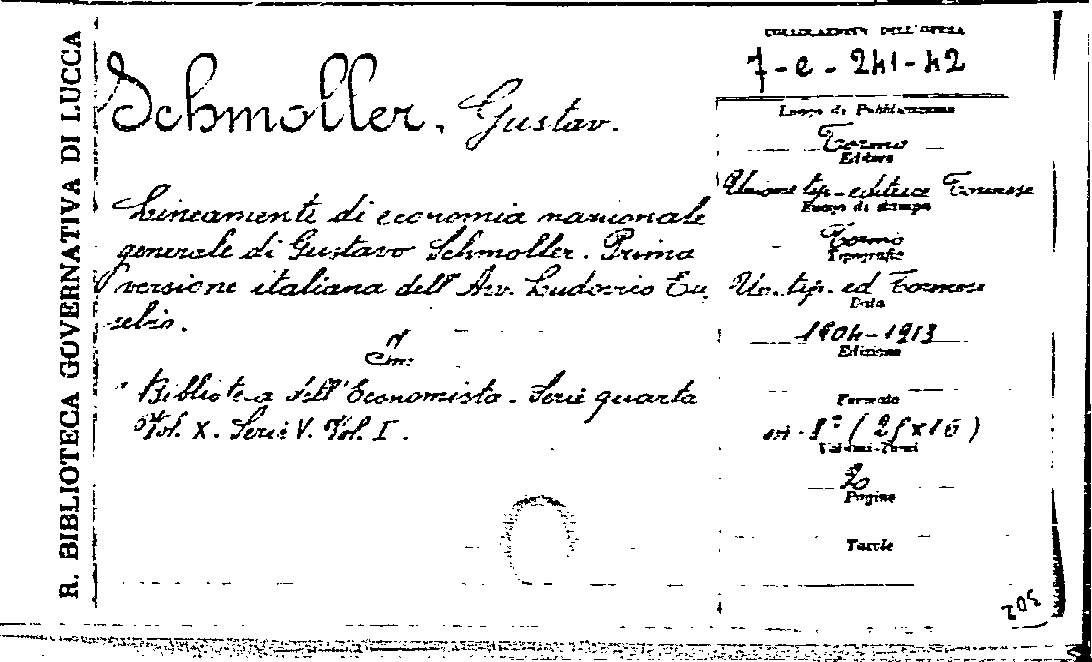 R. BIBLIOTECA GOVERNATIVA DI LUCCA
Schmoller, Gustav.
Lineamenti di economia nazionale
generale di Gustavo Schmoller. Prima
versione italiana dell'Avv. Ludovico Eu
sebio.
In:
"Biblioteca dell'Economista. Serie quarta
Vol. X. Serie V. Vol. I.
COLLOCAZIONE DELL'OPERA
7-e-241-42
Luogo di Pubblicazione
Torino
Editore
Unione tip.-editrice Torinese
Luogo di stampa
Torino
Tipografia
Un. tip. ed Torinese
Data
1904-1913
Edizione
Formato
in-8° (25x16)
Volumi-Tomi
2
Pagine
Tavole